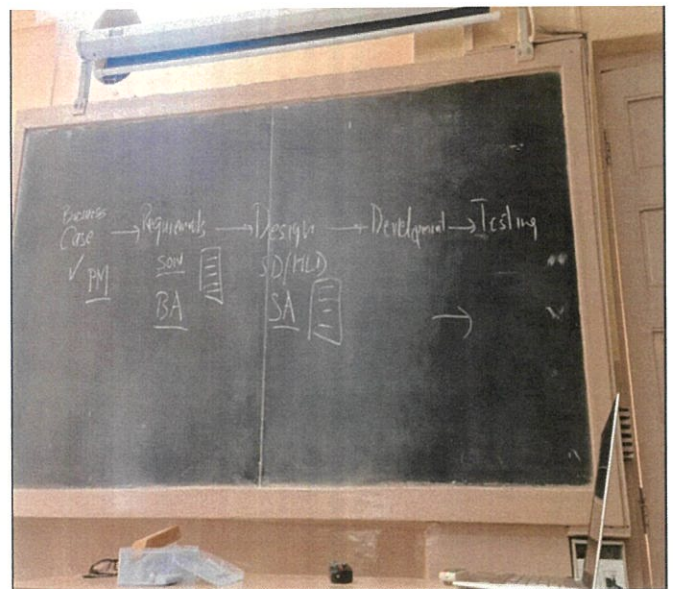 Business
Case → Requirements → Design → Development → Testing
✓ PM
SOW
SD/HLD
BA
SA
→